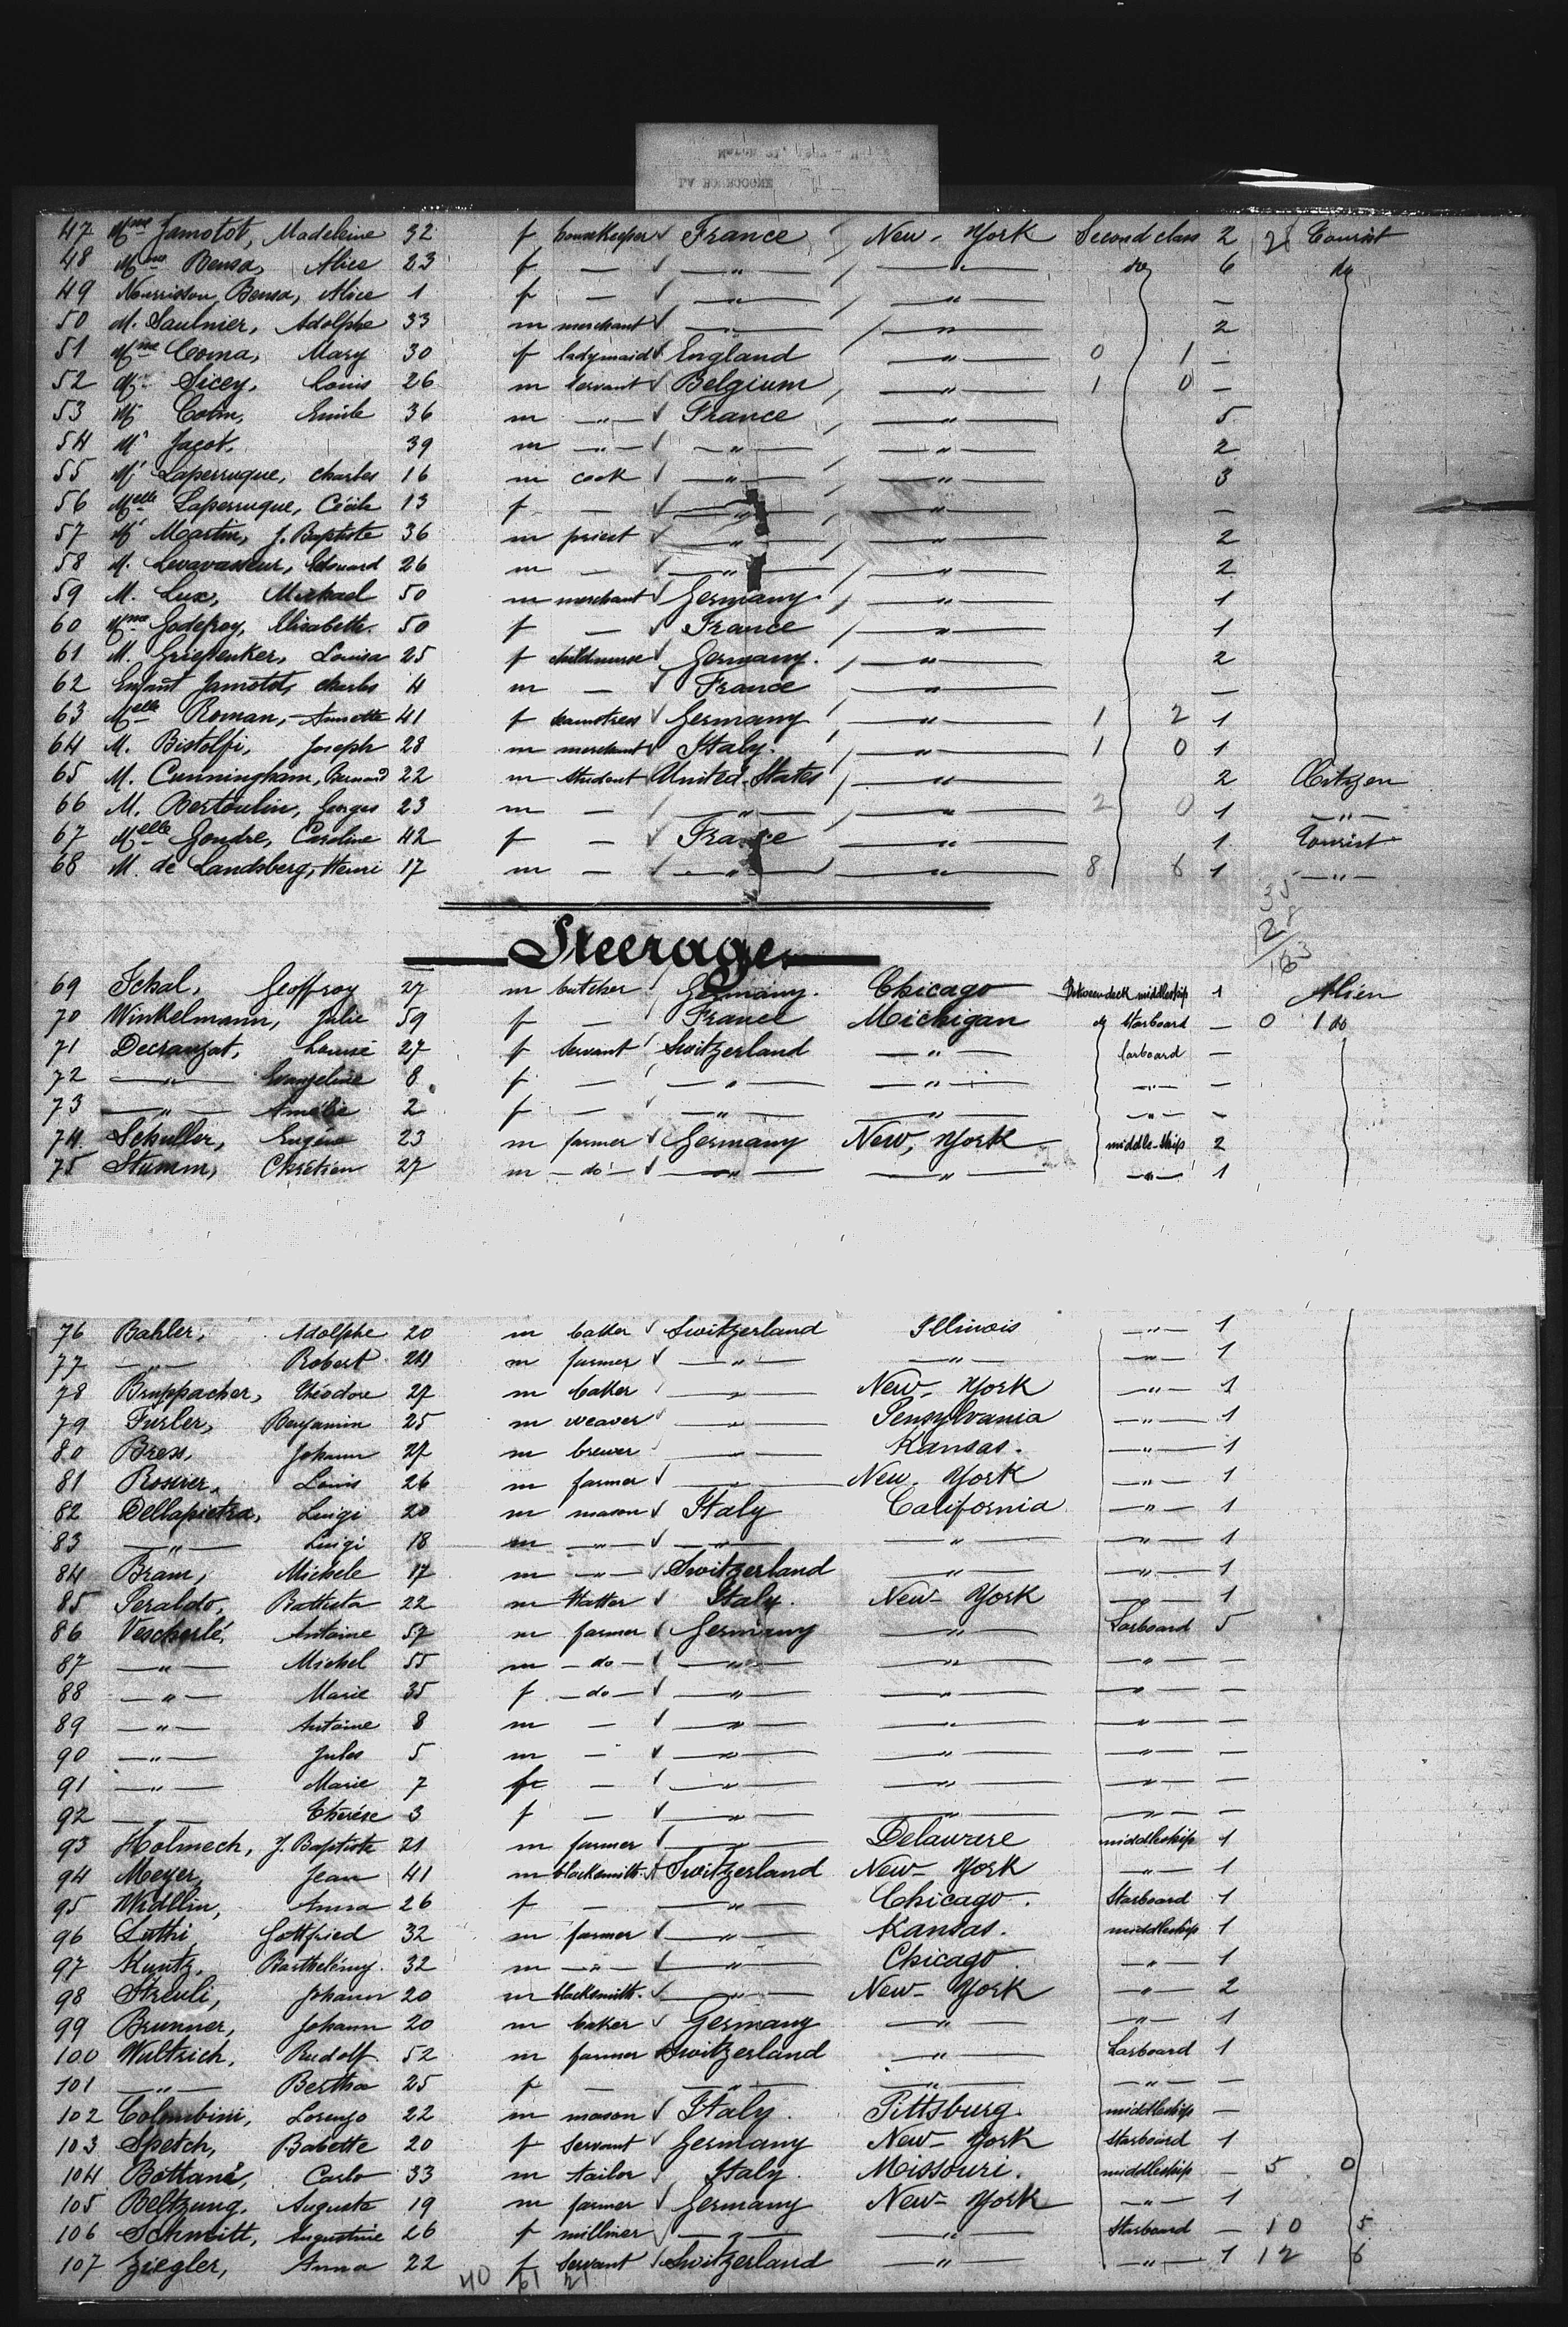 LA BOURGOGNE
47 Mme Jamotot, Madeleine 32 f housekeeper France New-York Second class 2 28 Tourist
48 Mme Bensa, Alice 23 f — " " do 6 do
49 Nourrisson Bensa, Alice 1 f — " " —
50 M. Saulnier, Adolphe 33 m merchant " " 2
51 Mme Coma, Mary 30 f ladymaid England " 0 1 —
52 M. Sicey, Louis 26 m servant Belgium " 1 0 —
53 M. Colin, Emile 36 m " France " 5
54 Mr Jacot, 39 m " " " 2
55 Mr Laperruque, Charles 16 m cook " " 3
56 Melle Laperruque, Cécile 13 f — " " —
57 Mr Martin, J. Baptiste 36 m priest " " 2
58 M. Levavasseur, Edouard 26 m — " " 2
59 M. Lux, Michael 50 m merchant Germany " 1
60 Mme Godefroy, Elisabeth. 50 f — France " 1
61 M. Griepenker, Louisa 25 f childnurse Germany. " 2
62 Enfant Jamotot, Charles 4 m — France " —
63 Melle Roman, Annette 41 f seamstress Germany " 1 2 1
64 M. Bistolfi, Joseph 28 m merchant Italy. " 1 0 1
65 M. Cunningham, Bernard 22 m student United-States " 2 Citizen
66 M. Bertoulin, Georges 23 m — " " 2 0 1 "
67 Melle Gondre, Caroline 42 f — France " 1 Tourist
68 M. de Landsberg, Henri 17 m — " " 8 6 1 "
35
28
163
Steerage
69 Schal, Geoffroy 27 m butcher Germany. Chicago Between deck middleship 1 Alien
70 Winkelmann, Julie 59 f — France Michigan do Starboard — 0 1 do
71 Decrauzat, Louise 27 f servant Switzerland " larboard —
72 " Evangeline 8 f — " " " —
73 " Amélie 2 f — " " " —
74 Schuller, Eugène 23 m farmer Germany New-York middle-ship 2
75 Stumm, Chrétien 27 m do " " " 1
76 Bahler, Adolphe 20 m baker Switzerland Illinois " 1
77 " Robert 24 m farmer " " " 1
78 Bruppacher, Théodore 27 m baker " New-York " 1
79 Furler, Benjamin 25 m weaver " Pensylvania " 1
80 Bress, Johann 27 m brewer " Kansas. " 1
81 Rosirer, Louis 26 m farmer " New-York " 1
82 Dellapietra, Luigi 20 m mason Italy California " 1
83 " Luigi 18 m " " " " 1
84 Bram, Michele 17 m " Switzerland " " 1
85 Peraldo, Battista 22 m Hatter Italy. New-York " 1
86 Vescherlé, Antoine 57 m farmer Germany " Larboard 5
87 " Michel 55 m do " " " —
88 " Marie 35 f do " " " —
89 " Antoine 8 m — " " " —
90 " Jules 5 m — " " " —
91 " Marie 7 f — " " " —
92 " Thérèse 3 f — " " " —
93 Holmech, J. Baptiste 21 m farmer " Delaware middleship 1
94 Meyer, Jean 41 m blacksmith Switzerland New-York " 1
95 Widlin, Anna 26 f — " Chicago. Starboard 1
96 Luthi, Gottfried 32 m farmer " Kansas. middleship 1
97 Kuntz, Barthélémy. 32 m " " Chicago. " 1
98 Streuli, Johann 20 m blacksmith. " New-York " 2
99 Brunner, Johann 20 m baker Germany " " 1
100 Wultrich, Rudolf 52 m farmer Switzerland " Larboard 1
101 " Bertha 25 f — " " " —
102 Colombini, Lorenzo 22 m mason Italy. Pittsburg. middleship —
103 Spetch, Babette 20 f servant Germany New-York Starboard 1
104 Bottané, Carlo 33 m tailor Italy Missouri. middleship — 5 0
105 Beltzung, Auguste 19 m farmer Germany New-York " 1
106 Schmitt, Augustine 26 f milliner " " Starboard — 10 5
107 Ziegler, Anna 22 f servant Switzerland " " 1 12 6
40 61 21